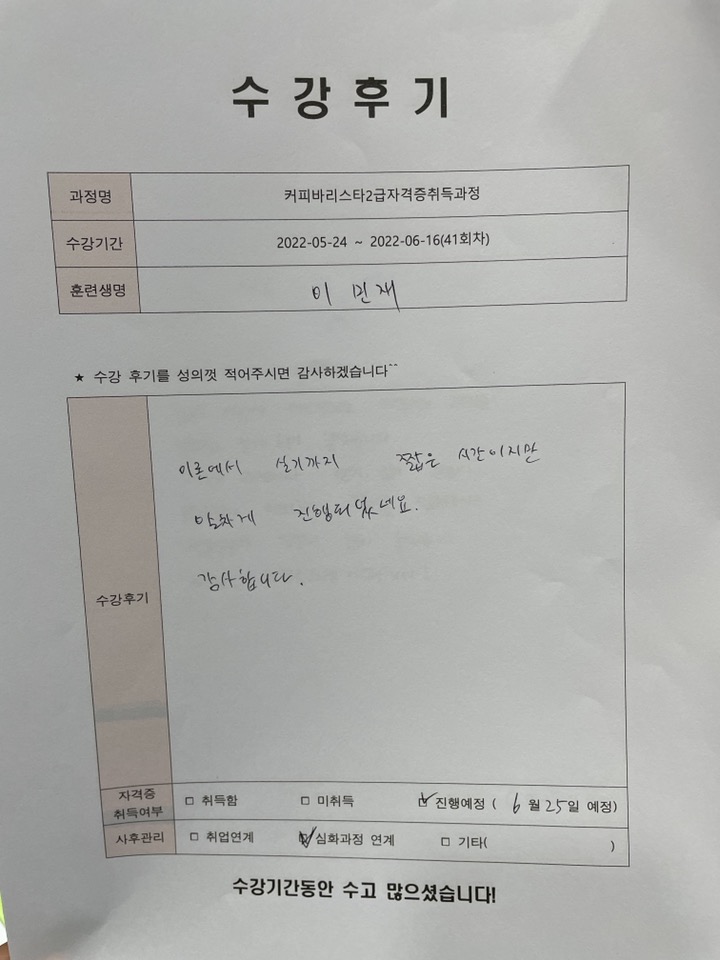 수강후기
과정명 커피바리스타2급자격증취득과정
수강기간 2022-05-24 ~ 2022-06-16(41회차)
훈련생명 이민재
★ 수강 후기를 성의껏 적어주시면 감사하겠습니다^^
이론에서 실기까지 짧은 시간이지만
알차게 진행되었네요.
감사합니다.
수강후기
자격증 취득여부 □ 취득함 □ 미취득 ☑ 진행예정 ( 6월 25일 예정)
사후관리 □ 취업연계 ☑ 심화과정 연계 □ 기타( )
수강기간동안 수고 많으셨습니다!